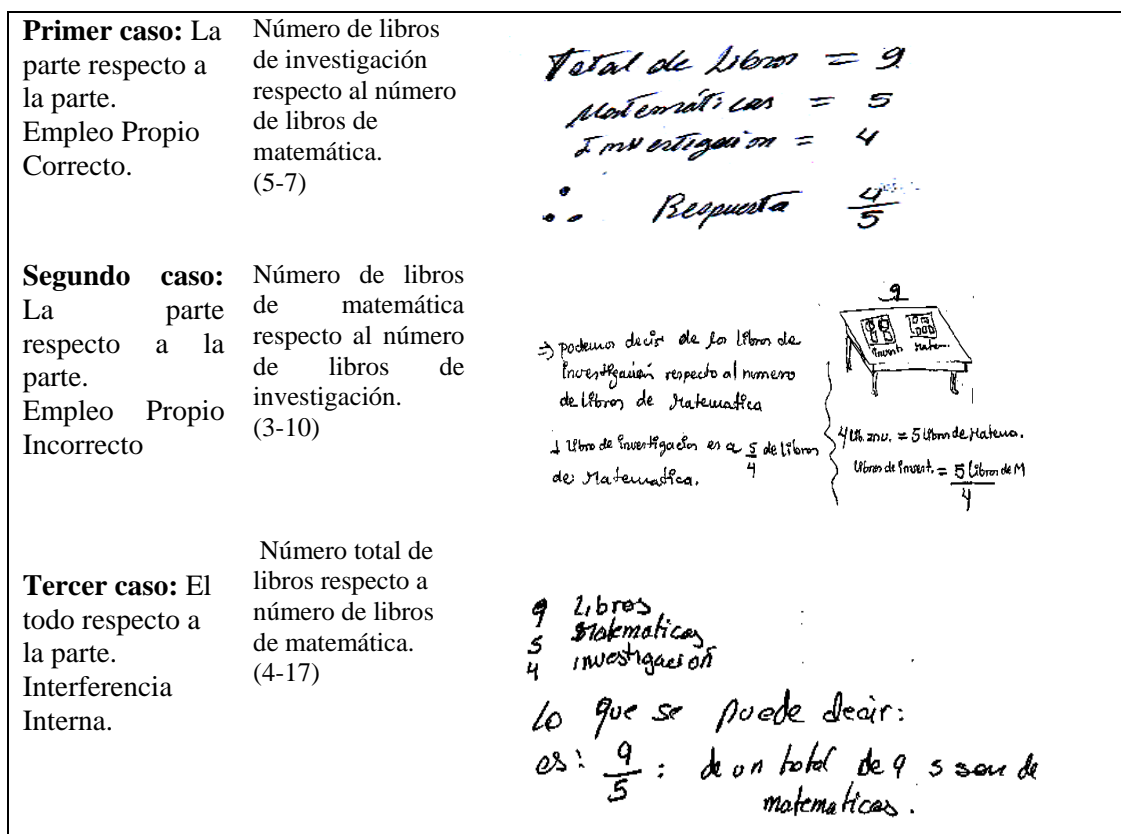 Primer caso: La
parte respecto a
la parte.
Empleo Propio
Correcto.
Número de libros
de investigación
respecto al número
de libros de
matemática.
(5-7)
Total de Libros = 9
Matemáticas = 5
Investigación = 4
∴ Respuesta 4/5
Segundo caso:
La parte
respecto a la
parte.
Empleo Propio
Incorrecto
Número de libros
de matemática
respecto al número
de libros de
investigación.
(3-10)
⇒ podemos decir de los libros de
Investigación respecto al numero
de libros de Matematica
1 libro de investigación es a 5/4 de libros
de Matematica.
9
Invest Matem.
4 lib. inv. = 5 libros de Matema.
libros de Invest. = 5 libros de M
4
Tercer caso: El
todo respecto a
la parte.
Interferencia
Interna.
Número total de
libros respecto a
número de libros
de matemática.
(4-17)
9 Libros
5 Matematicas
4 investigación
Lo que se puede decir:
es: 9/5 : de un total de 9 5 son de
matematicas.